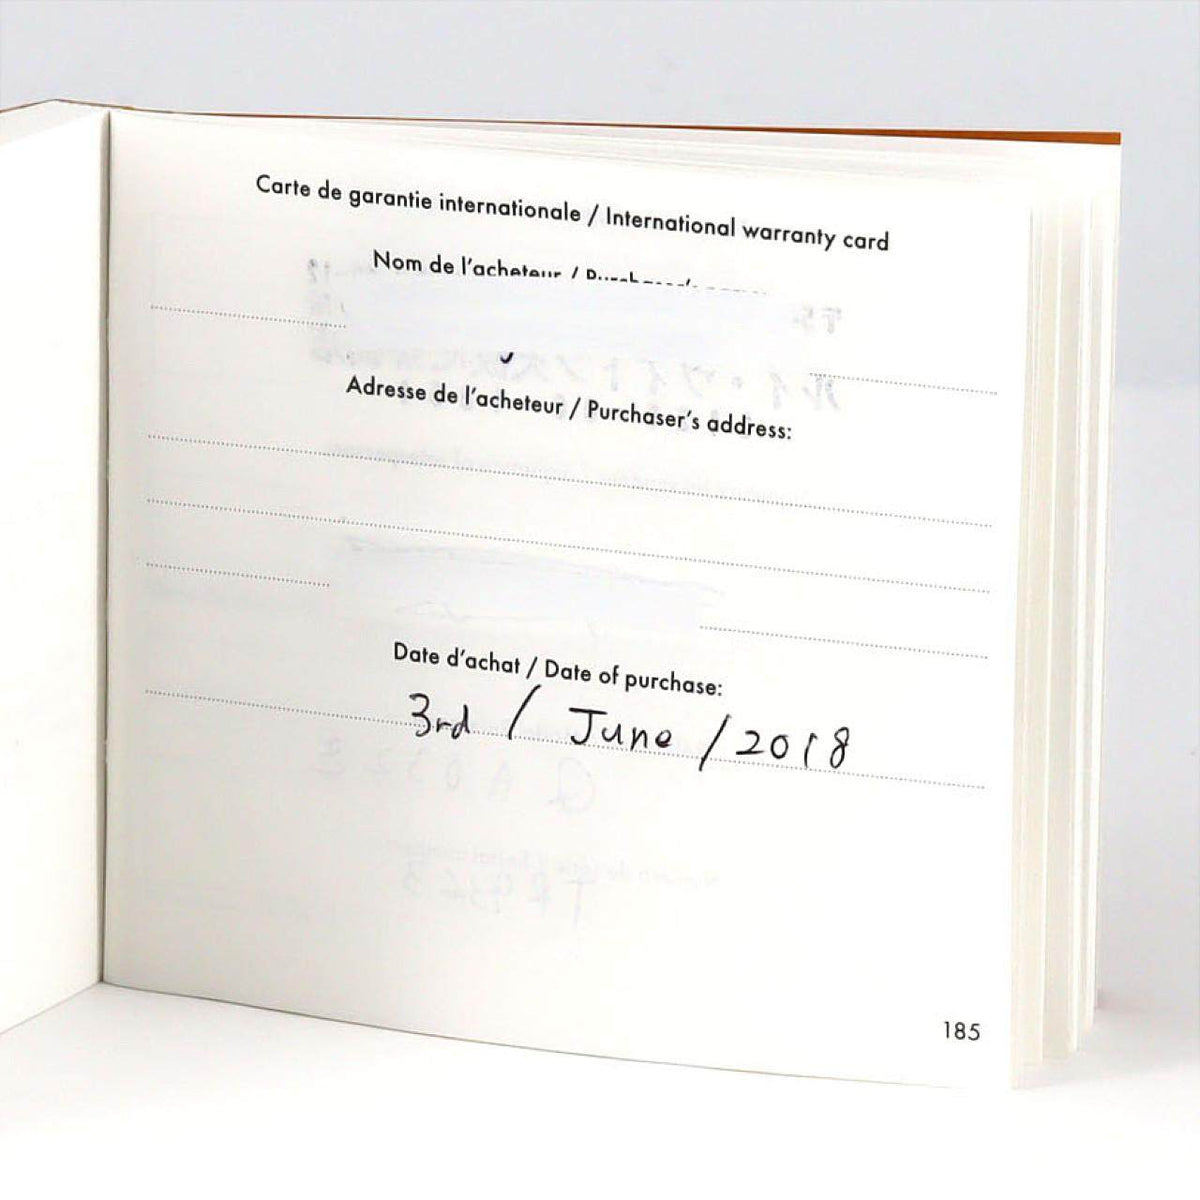 Carte de garantie internationale / International warranty card
Nom de l'acheteur /
Adresse de l'acheteur / Purchaser's address:
Date d'achat / Date of purchase:
3rd / June / 2018
185